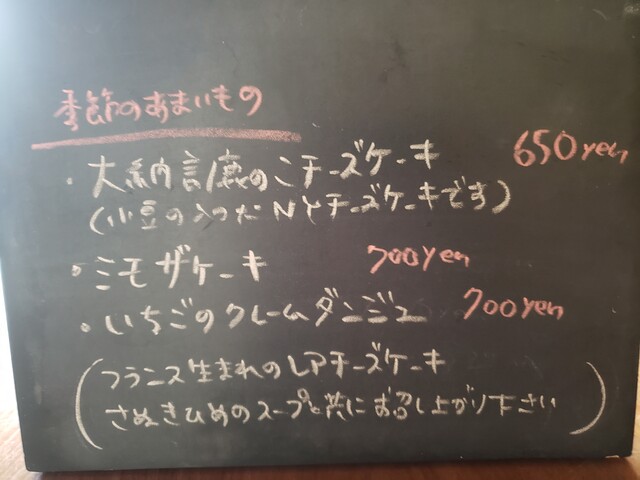 季節のあまいもの
・大納言鹿のこチーズケーキ 650yen
(小豆の入ったNYチーズケーキです)
・ミモザケーキ 700yen
・いちごのクレームダンジュ 700yen
(フランス生まれのレアチーズケーキ
さぬきひめのスープと共にお召し上がり下さい)